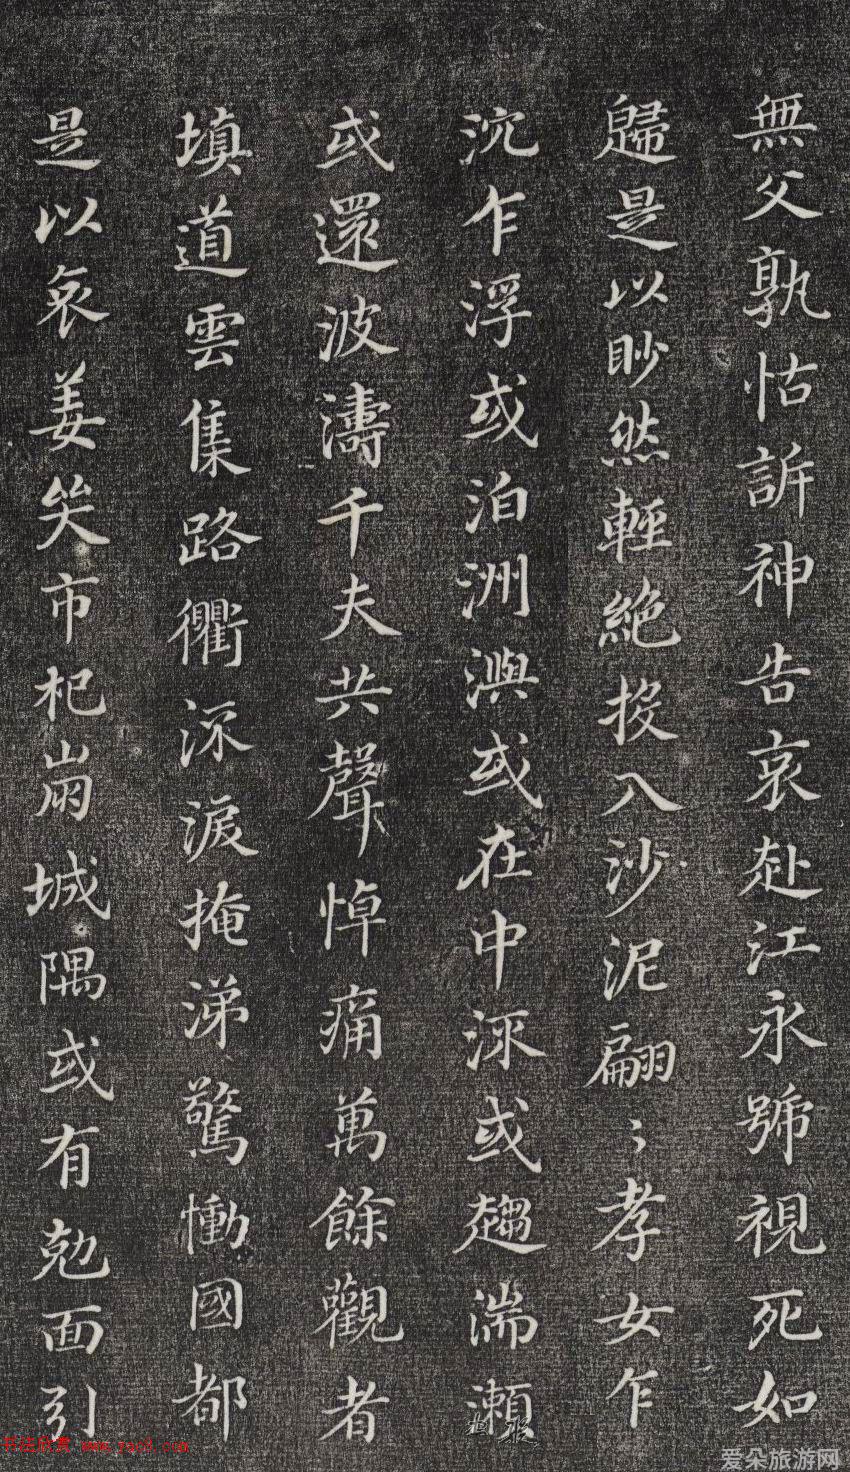 無父孰怙訴神告哀赴江永號視死如
歸是以眇然輕絕投入沙泥翩〻孝女乍
沉乍浮或泊洲㠘或在中流或趨湍瀨
或還波濤千夫共聲悼痛萬餘觀者
填道雲集路衢流淚掩涕驚慟國都
是以哀姜哭市杞崩城隅或有勊面引
书法欣赏 www.yac8.com
爱朵旅游网